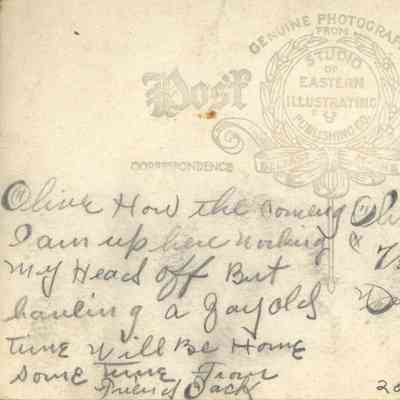 GENUINE PHOTOGRAPH
FROM
STUDIO
OF
EASTERN
ILLUSTRATING
&
PUBLISHING CO.
BELFAST
Post
CORRESPONDENCE
Olive How the
I am up here working
My Head off But
haveing a Gay old
Time Will Be Home
some Time From
Friend Jack